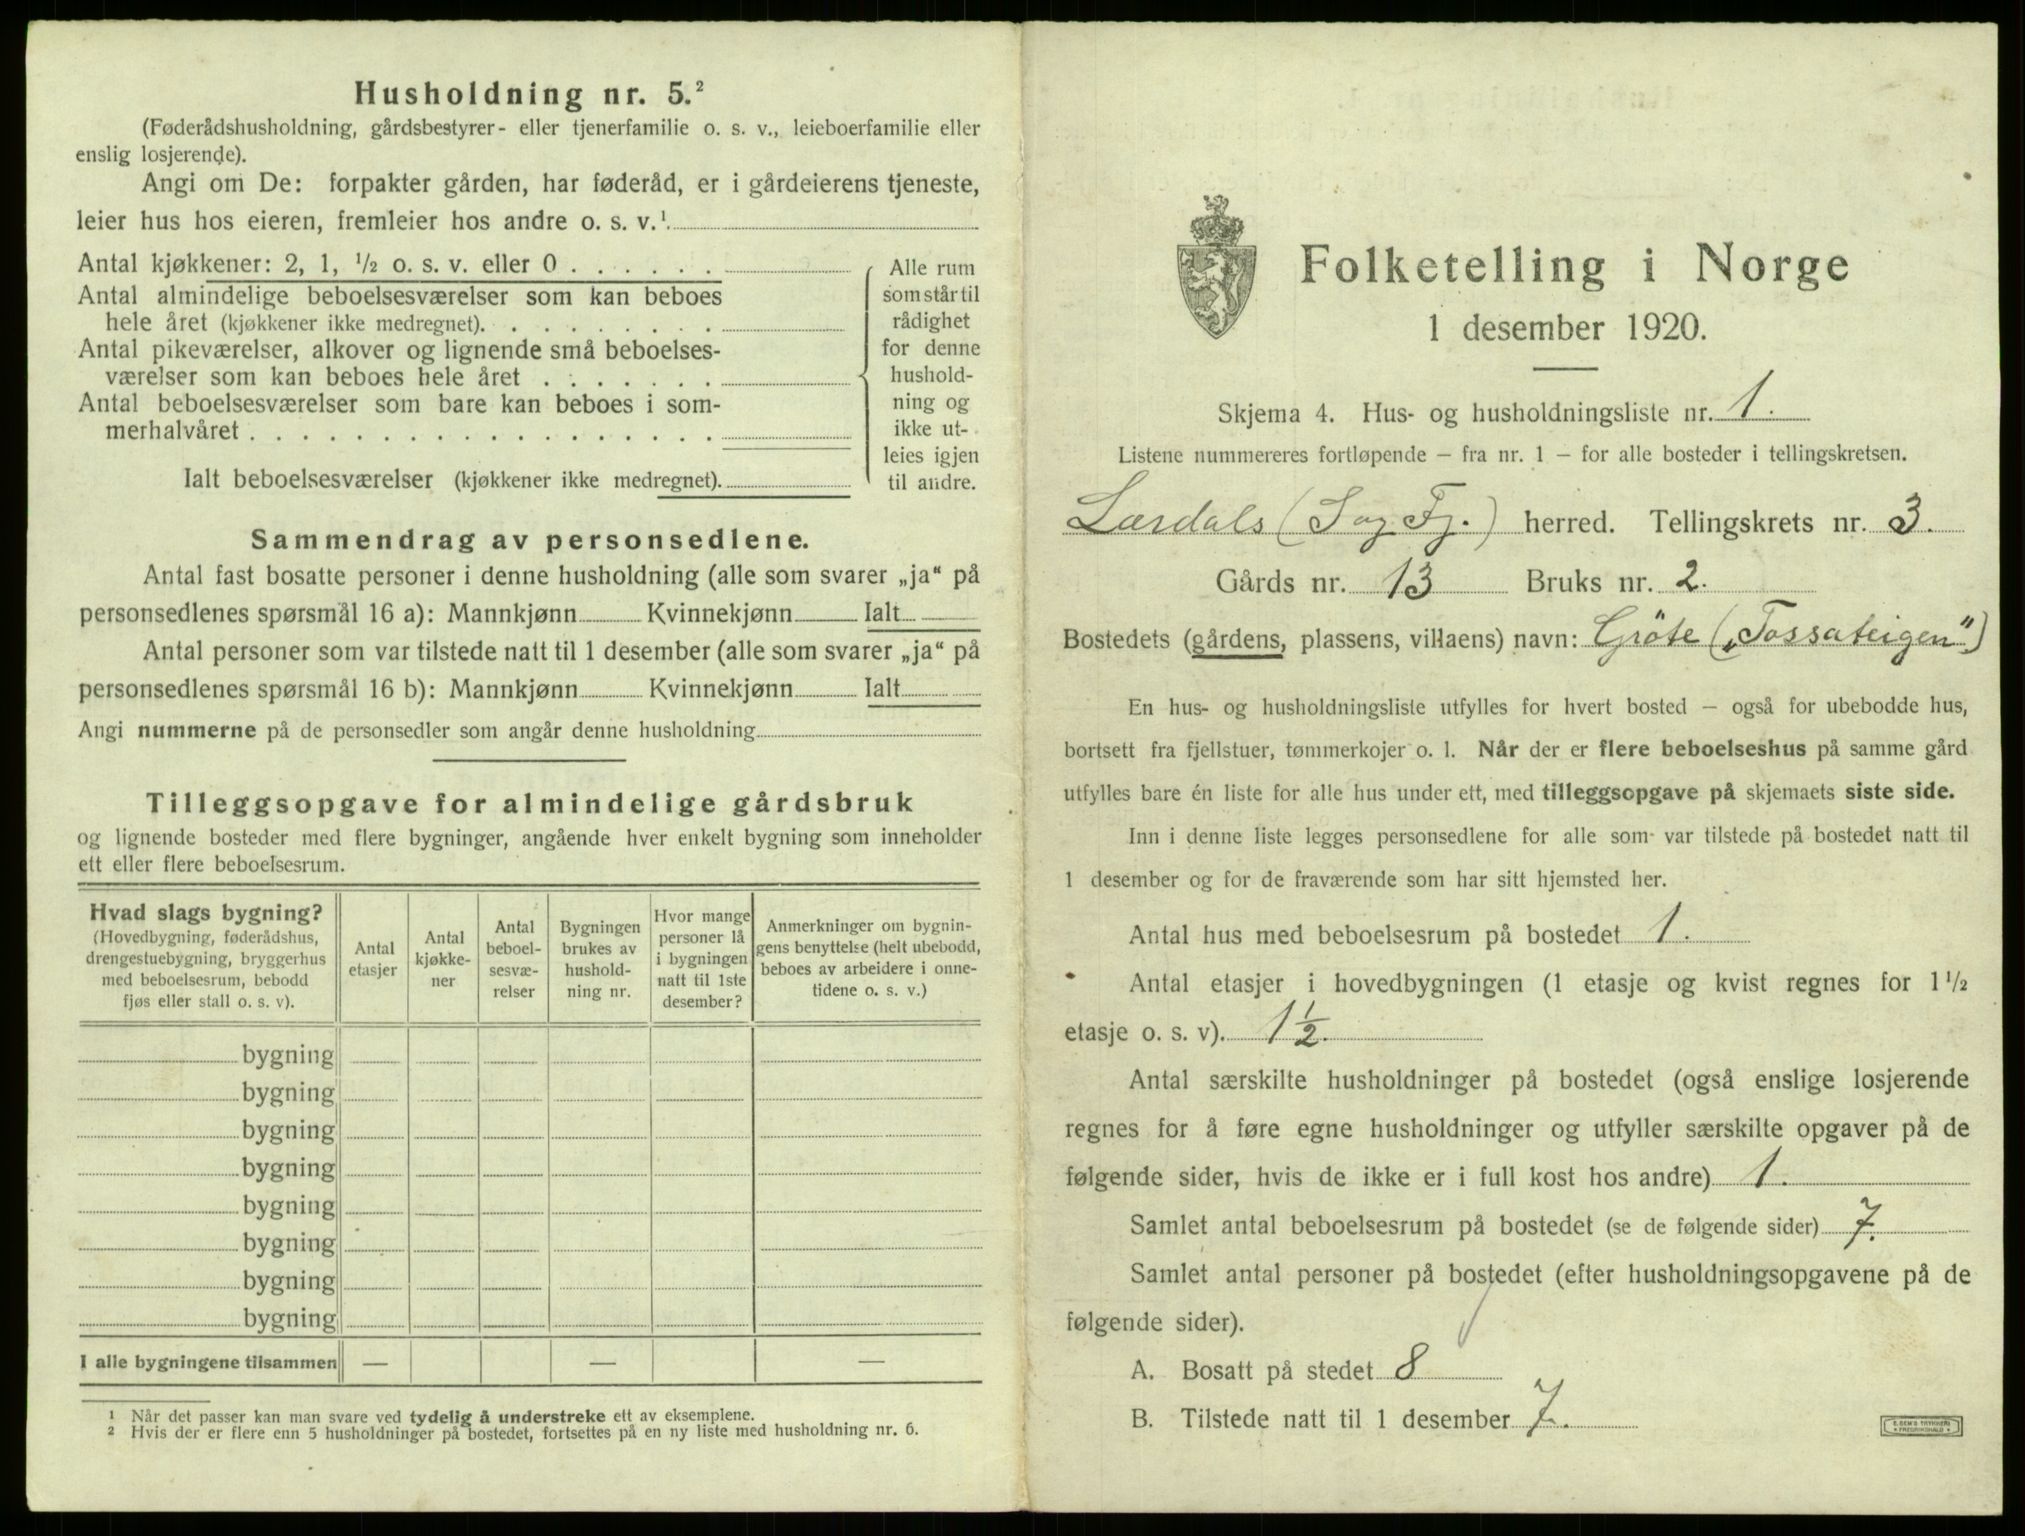 Husholdning nr. 5.²
(Føderådshusholdning, gårdsbestyrer- eller tjenerfamilie o. s. v., leieboerfamilie eller
enslig losjerende).
Angi om De: forpakter gården, har føderåd, er i gårdeierens tjeneste,
leier hus hos eieren, fremleier hos andre o. s. v.¹
Antal kjøkkener: 2, 1, ½ o. s. v. eller 0
Antal almindelige beboelsesværelser som kan beboes
hele året (kjøkkener ikke medregnet).
Antal pikeværelser, alkover og lignende små beboelses-
værelser som kan beboes hele året
Antal beboelsesværelser som bare kan beboes i som-
merhalvåret
Ialt beboelsesværelser (kjøkkener ikke medregnet).
Alle rum
som står til
rådighet
for denne
hushold-
ning og
ikke ut-
leies igjen
til andre.
Sammendrag av personsedlene.
Antal fast bosatte personer i denne husholdning (alle som svarer „ja“ på
personsedlenes spørsmål 16 a): Mannkjønn Kvinnekjønn Ialt
Antal personer som var tilstede natt til 1 desember (alle som svarer „ja“ på
personsedlenes spørsmål 16 b): Mannkjønn Kvinnekjønn Ialt
Angi nummerne på de personsedler som angår denne husholdning
Tilleggsopgave for almindelige gårdsbruk
og lignende bosteder med flere bygninger, angående hver enkelt bygning som inneholder
ett eller flere beboelsesrum.
Hvad slags bygning?
(Hovedbygning, føderådshus,
drengestuebygning, bryggerhus
med beboelsesrum, bebodd
fjøs eller stall o. s. v).
Antal
etasjer
Antal
kjøkke-
ner
Antal
beboel-
sesvæ-
relser
Bygningen
brukes av
hushold-
ning nr.
Hvor mange
personer lå
i bygningen
natt til 1ste
desember?
Anmerkninger om bygnin-
gens benyttelse (helt ubebodd,
beboes av arbeidere i onne-
tidene o. s. v.)
bygning
bygning
bygning
bygning
bygning
bygning
bygning
bygning
I alle bygningene tilsammen — — —
¹ Når det passer kan man svare ved tydelig å understreke ett av eksemplene.
² Hvis der er flere enn 5 husholdninger på bostedet, fortsettes på en ny liste med husholdning nr. 6.
Folketelling i Norge
1 desember 1920.
Skjema 4. Hus- og husholdningsliste nr. 1.
Listene nummereres fortløpende – fra nr. 1 – for alle bosteder i tellingskretsen.
Lærdals (Sog Fj.) herred. Tellingskrets nr. 3.
Gårds nr. 13 Bruks nr. 2.
Bostedets (gårdens, plassens, villaens) navn: Gröte („Fossateigen“)
En hus- og husholdningsliste utfylles for hvert bosted – også for ubebodde hus,
bortsett fra fjellstuer, tømmerkojer o. l. Når der er flere beboelseshus på samme gård
utfylles bare én liste for alle hus under ett, med tilleggsopgave på skjemaets siste side.
Inn i denne liste legges personsedlene for alle som var tilstede på bostedet natt til
1 desember og for de fraværende som har sitt hjemsted her.
Antal hus med beboelsesrum på bostedet 1.
Antal etasjer i hovedbygningen (1 etasje og kvist regnes for 1½
etasje o. s. v). 1½.
Antal særskilte husholdninger på bostedet (også enslige losjerende
regnes for å føre egne husholdninger og utfyller særskilte opgaver på de
følgende sider, hvis de ikke er i full kost hos andre) 1.
Samlet antal beboelsesrum på bostedet (se de følgende sider) 7.
Samlet antal personer på bostedet (efter husholdningsopgavene på de
følgende sider).
A. Bosatt på stedet 8
B. Tilstede natt til 1 desember 7.
E. SEM'S TRYKKERI
FREDRIKSHALD